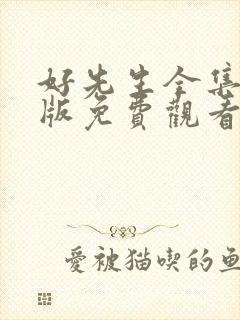 好先生全集
版免費觀看
愛被猫喫的魚